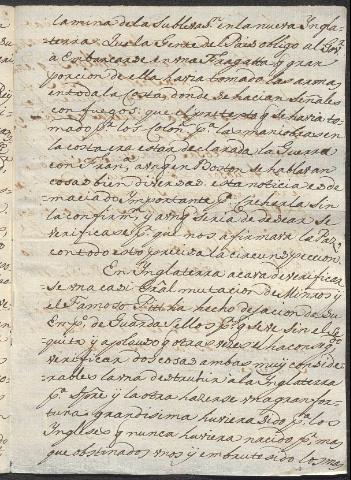 la mina de la Sublevas.n en la nueva Ingla-
terra. Que la Gente del Pais obligo al Gov.r
a Embarcarse en una Fragata, y gran
porcion de ella havia tomado las armas
en toda la Costa, donde se hacian señales
con fuegos: que el pretexto q.e se havia to-
mado p.r los Colon.s p.a la maniobra en
la costa era estar declarada la Guerra
con Fran.a, aunq.e en Boston se hablavan
cosas bien diversas. esta noticia es de-
maciado importante p.a creherla sin
la confirm.n, y aunq.e seria de desear se
verificase p.r que nos afirmara la Paz,
con todo esto precisa la circunspeccion.
En Inglaterra acava de verificar
se una casi Gral mutacion de Minros y
el Famoso Pitt ha hecho dejacion de su
Emp.o de Guarda sellos p.r q.e se ve sin el se-
quito y aplauso q.e otras veces el hacer
verificar dos cosas ambas muy conside-
rables la una destruhir a la Inglaterra
p.a Spre y la otra hazerse un gran for-
tuna grandisima huviera sido p.a los
Ingleses q.e nunca huviera nacido p.r mas
que obstinados unos y embrutesidos los mas